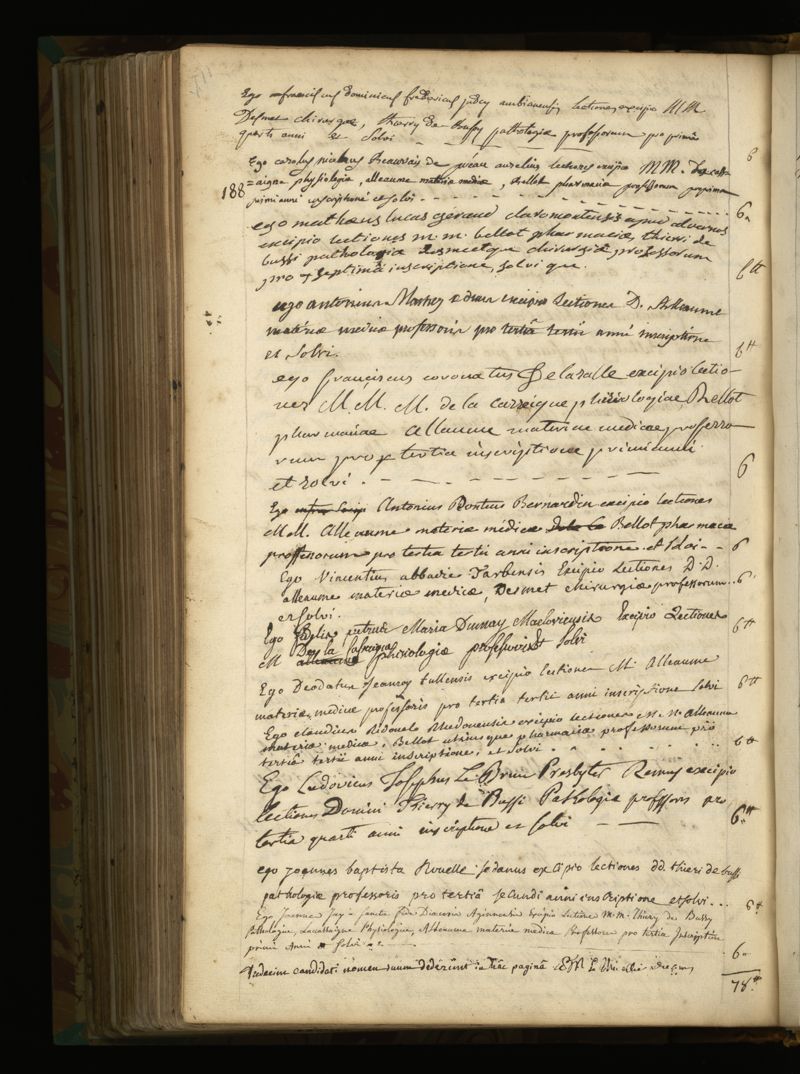 Ego franciscus dominicus fredericus judcy ambianensis lectiones excipio MM
Desmet chirurgiæ, thierry de Bussy pathologiæ professorum pro prima
quarti anni et solvi 6
Ego carolus nicolaus Beauvais de aurelius lectiones excipio MM. de la cassa
188 =aigne physiologiæ, alleaume materiæ medicæ, Bellot pharmaciæ professorum pro prima
primi anni inscriptione et solvi 6
ego mathæus lucas géraud claromontensis apud arvernos
excipio lectiones m. m. bellot pharmaciæ, thieri de
bussi pathologiæ desmeetque chirurgiæ, professorum
pro septimâ inscriptione, solvique. 6tt
ego antonius excipio lectiones D. Alleaume
materiæ medicæ professoris pro tertiâ tertii anni inscriptione
et solvi. 6tt
ego franciscus coronatus Delasalle excipio lectio-
nes M. M. M. de la Cassaigne phisiologiæ, Bellot
pharmaciæ alleaume materiæ medicæ, professo
rum pro tertia inscriptione primi anni
et solvi. 6
Ego Antonius Pontius Bernardin excipio lectiones
M.M. Alleaume materiæ medicæ Bellot pharmaciæ
professorum pro tertia tertii anni inscriptione et solvi 6
Ego Vincentius abbadie Tarbensis Excipio Lectiones D.D.
alleaume materiæ medicæ, Desmet chirurgiæ professorum 6
et solvi.
Ego petrus Maria Dunay Macloviensis Excipio Lectiones
M De la Cassaigne phisiologiæ professoris et solvi 6tt
Ego Deodatus Jeanroy tullensis excipio lectiones M. Alleaume
materiæ medicæ professoris pro tertia tertii anni inscriptione solvi 6tt
Ego claudius Ridouel Rhedonensis excipio lectiones M. M. alleaume
materiæ medicæ, Bellot utriusque pharmaciæ professorum pro
tertiâ tertii anni inscriptione, et solvi 6tt
Ego Ludovicus Josephus Le Brun Presbyter Remus excipio
lectiones Domini Thierry de Bussi Pathologiæ professoris pro
tertia quarti anni inscriptione et solvi 6tt
ego joannes baptista Rouelle sedanus excipio lectiones dd. thieri de bussi
pathologiæ professoris pro tertiâ secundi anni inscriptione et solvi... 6tt
Ego Joannes Jay a sancta fide Diœcesis Aginnensis Excipio Lectiones M.M. Thiery de Bussy
Pathologiæ, Lacassaigne Physiologiæ, Alleaume materiæ medicæ Professorum pro tertia Inscriptione
primi Anni et solvi 6
Tredecim candidati nomen suum dederunt in hâc paginâ
78tt